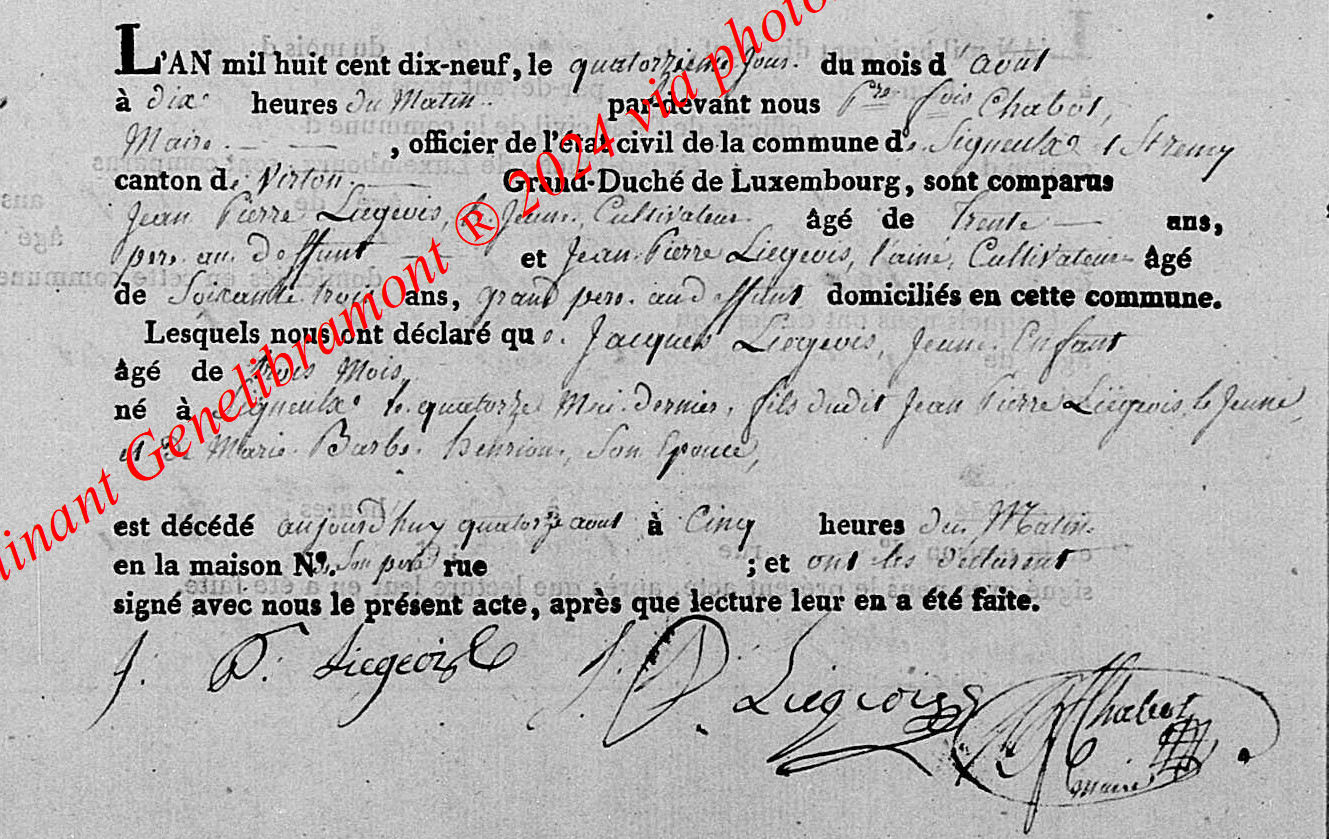 L'AN mil huit cent dix-neuf, le quatorzieme jour du mois d'aout
à dix heures du Matin par-devant nous Prre fois Chabot,
Maire , officier de l'état civil de la commune de Signeulx & St remy
canton de Virton Grand-Duché de Luxembourg, sont comparus
Jean Pierre Liegeois, le Jeune, Cultivateur âgé de trente ans,
pere au deffunt et Jean Pierre Liegeois, l'ainé, Cultivateur âgé
de Soixante trois ans, grand pere aud deffunt domiciliés en cette commune.
Lesquels nous ont déclaré que Jacques Liegeois, Jeune Enfant
âgé de trois Mois,
né à Signeulx le quatorze Mai dernier, fils dudit Jean Pierre Liégeois le Jeune,
et de Marie Barbe henrion, Son Epouce,
est décédé aujourd'huy quatorze aout à Cinq heures du Matin
en la maison No. Son pere rue ; et ont les declarent
signé avec nous le présent acte, après que lecture leur en a été faite.
J. P. Liegeois J. P. Liegeois Chabot
maire
inant Genelibramont ® 2024 via photo